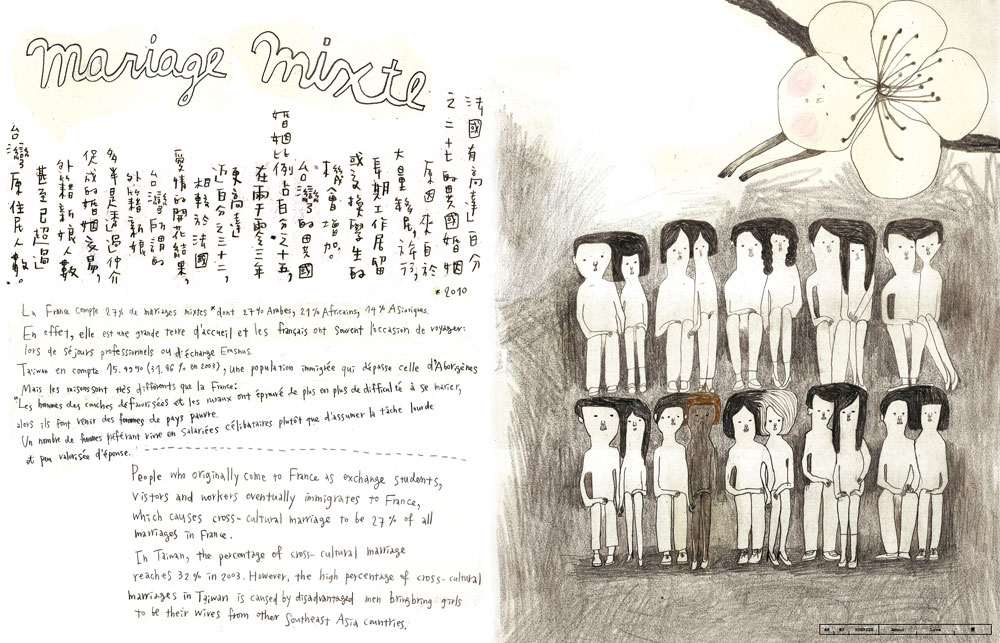 mariage mixte
法國有高達百分
之二十七的異國婚姻
原因來自於
大量移民,旅行,
長期工作居留
或交換學生的
機會增加。
台灣的異國
婚姻比例占百分之十五,
在兩千零三年
更高達
近百分之三十二,
相較於法國
愛情的開花結果,
台灣所謂的
外籍新娘
多半是透過仲介
促成的婚姻交易,
外籍新娘人數
甚至已超過
台灣原住民人數。
*2010
La France compte 27% de mariages mixtes* dont 27% Arabes, 21% Africains, 14% Asiatiques.
En effet, elle est une grande terre d'accueil et les français ont souvent l'occasion de voyager:
lors de séjours professionnels ou d'échange Erasmus.
Taiwan en compte 15.49% (31.86% en 2003), une population immigrée qui dépasse celle d'Aborigènes
Mais les raisons sont très différents que la France:
"Les hommes des couches défavorisées et les ruraux ont éprouvé de plus en plus de difficulté à se marier,
alors ils font venir des femmes de pays pauvre.
Un nombre de femmes préférant vivre en salariées célibataires plutôt que d'assumer la tâche lourde
et peu valorisée d'épouse.
People who originally come to France as exchange students,
vistors and workers eventually immigrates to France,
which causes cross-cultural marriage to be 27% of all
marriages in France.
In Taiwan, the percentage of cross-cultural marriage
reaches 32% in 2003. However, the high percentage of cross-cultural
marriages in Taiwan is caused by disadvantaged men bringbring girls
to be their wives from other Southeast Asia countries.